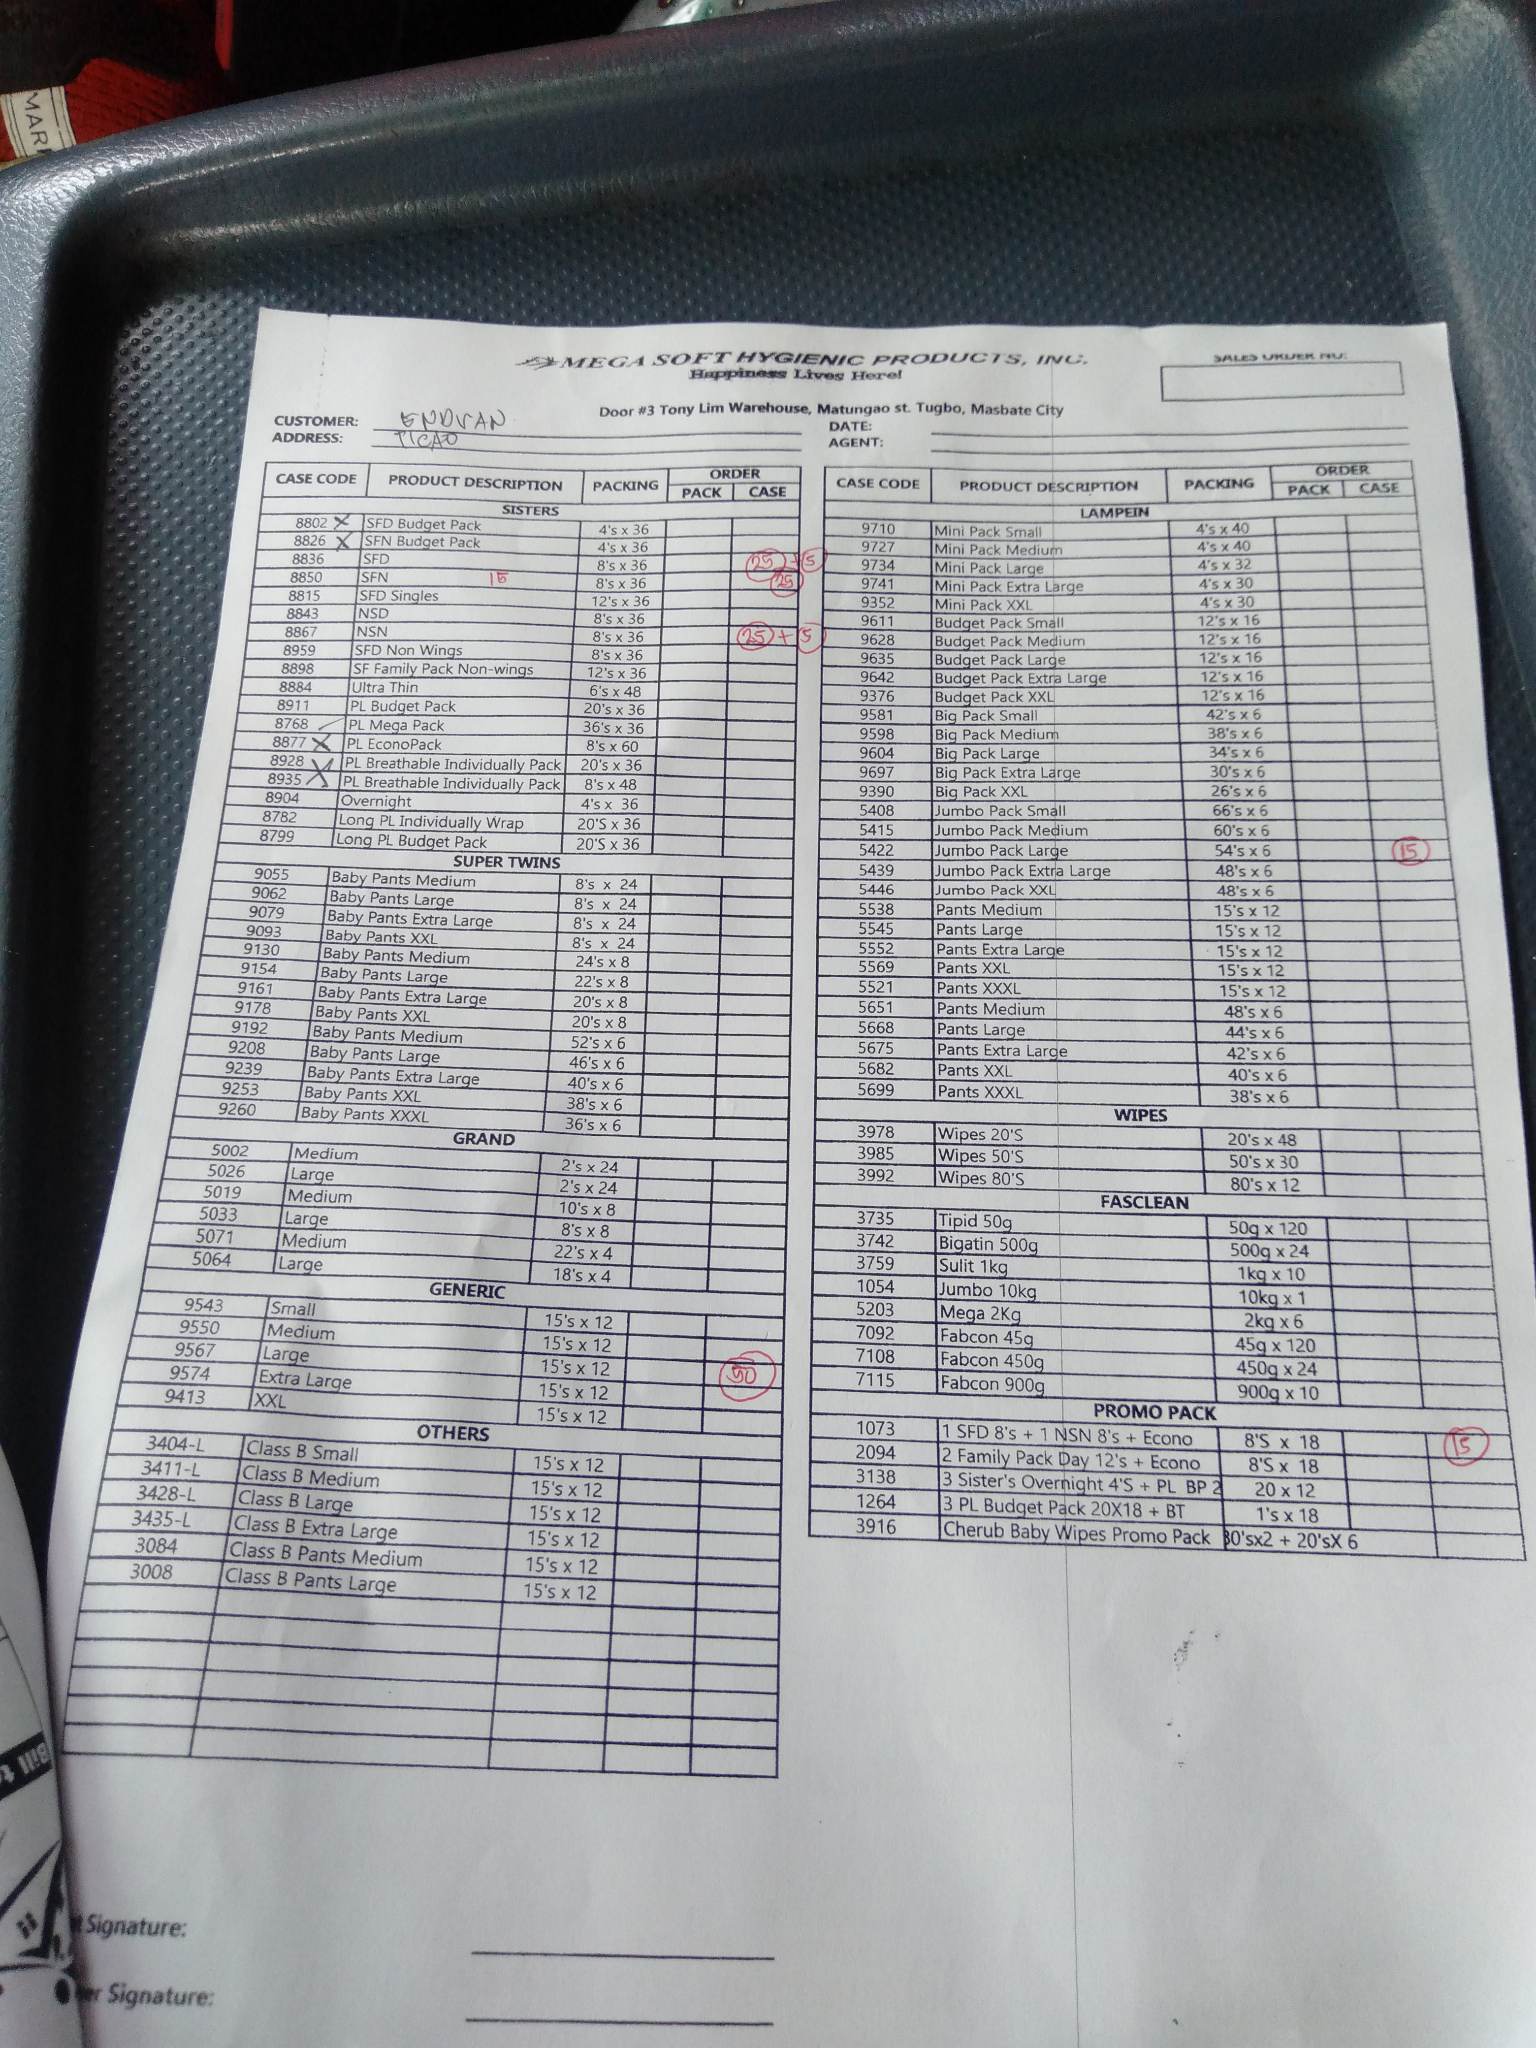 MARK
MEGA SOFT HYGIENIC PRODUCTS, INC.
Happiness Lives Here!
SALES ORDER NO:
Door #3 Tony Lim Warehouse, Matungao st. Tugbo, Masbate City
CUSTOMER: ENDVAN
ADDRESS: TICAO
DATE:
AGENT:
CASE CODE PRODUCT DESCRIPTION PACKING ORDER PACK CASE
SISTERS
8802 X SFD Budget Pack 4's x 36
8826 X SFN Budget Pack 4's x 36
8836 SFD 8's x 36 25 + 5
8850 SFN 15 8's x 36 25
8815 SFD Singles 12's x 36
8843 NSD 8's x 36
8867 NSN 8's x 36 25 + 5
8959 SFD Non Wings 8's x 36
8898 SF Family Pack Non-wings 12's x 36
8884 Ultra Thin 6's x 48
8911 PL Budget Pack 20's x 36
8768 PL Mega Pack 36's x 36
8877 X PL EconoPack 8's x 60
8928 X PL Breathable Individually Pack 20's x 36
8935 X PL Breathable Individually Pack 8's x 48
8904 Overnight 4's x 36
8782 Long PL Individually Wrap 20'S x 36
8799 Long PL Budget Pack 20'S x 36
SUPER TWINS
9055 Baby Pants Medium 8's x 24
9062 Baby Pants Large 8's x 24
9079 Baby Pants Extra Large 8's x 24
9093 Baby Pants XXL 8's x 24
9130 Baby Pants Medium 24's x 8
9154 Baby Pants Large 22's x 8
9161 Baby Pants Extra Large 20's x 8
9178 Baby Pants XXL 20's x 8
9192 Baby Pants Medium 52's x 6
9208 Baby Pants Large 46's x 6
9239 Baby Pants Extra Large 40's x 6
9253 Baby Pants XXL 38's x 6
9260 Baby Pants XXXL 36's x 6
GRAND
5002 Medium 2's x 24
5026 Large 2's x 24
5019 Medium 10's x 8
5033 Large 8's x 8
5071 Medium 22's x 4
5064 Large 18's x 4
GENERIC
9543 Small 15's x 12
9550 Medium 15's x 12
9567 Large 15's x 12 50
9574 Extra Large 15's x 12
9413 XXL 15's x 12
OTHERS
3404-L Class B Small 15's x 12
3411-L Class B Medium 15's x 12
3428-L Class B Large 15's x 12
3435-L Class B Extra Large 15's x 12
3084 Class B Pants Medium 15's x 12
3008 Class B Pants Large 15's x 12
CASE CODE PRODUCT DESCRIPTION PACKING ORDER PACK CASE
LAMPEIN
9710 Mini Pack Small 4's x 40
9727 Mini Pack Medium 4's x 40
9734 Mini Pack Large 4's x 32
9741 Mini Pack Extra Large 4's x 30
9352 Mini Pack XXL 4's x 30
9611 Budget Pack Small 12's x 16
9628 Budget Pack Medium 12's x 16
9635 Budget Pack Large 12's x 16
9642 Budget Pack Extra Large 12's x 16
9376 Budget Pack XXL 12's x 16
9581 Big Pack Small 42's x 6
9598 Big Pack Medium 38's x 6
9604 Big Pack Large 34's x 6
9697 Big Pack Extra Large 30's x 6
9390 Big Pack XXL 26's x 6
5408 Jumbo Pack Small 66's x 6
5415 Jumbo Pack Medium 60's x 6
5422 Jumbo Pack Large 54's x 6 15
5439 Jumbo Pack Extra Large 48's x 6
5446 Jumbo Pack XXL 48's x 6
5538 Pants Medium 15's x 12
5545 Pants Large 15's x 12
5552 Pants Extra Large 15's x 12
5569 Pants XXL 15's x 12
5521 Pants XXXL 15's x 12
5651 Pants Medium 48's x 6
5668 Pants Large 44's x 6
5675 Pants Extra Large 42's x 6
5682 Pants XXL 40's x 6
5699 Pants XXXL 38's x 6
WIPES
3978 Wipes 20'S 20's x 48
3985 Wipes 50'S 50's x 30
3992 Wipes 80'S 80's x 12
FASCLEAN
3735 Tipid 50g 50g x 120
3742 Bigatin 500g 500g x 24
3759 Sulit 1kg 1kg x 10
1054 Jumbo 10kg 10kg x 1
5203 Mega 2Kg 2kg x 6
7092 Fabcon 45g 45g x 120
7108 Fabcon 450g 450g x 24
7115 Fabcon 900g 900g x 10
PROMO PACK
1073 1 SFD 8's + 1 NSN 8's + Econo 8'S x 18 15
2094 2 Family Pack Day 12's + Econo 8'S x 18
3138 3 Sister's Overnight 4'S + PL BP 2 20 x 12
1264 3 PL Budget Pack 20X18 + BT 1's x 18
3916 Cherub Baby Wipes Promo Pack 80'sx2 + 20'sX 6
Bill to
Signature:
Signature: